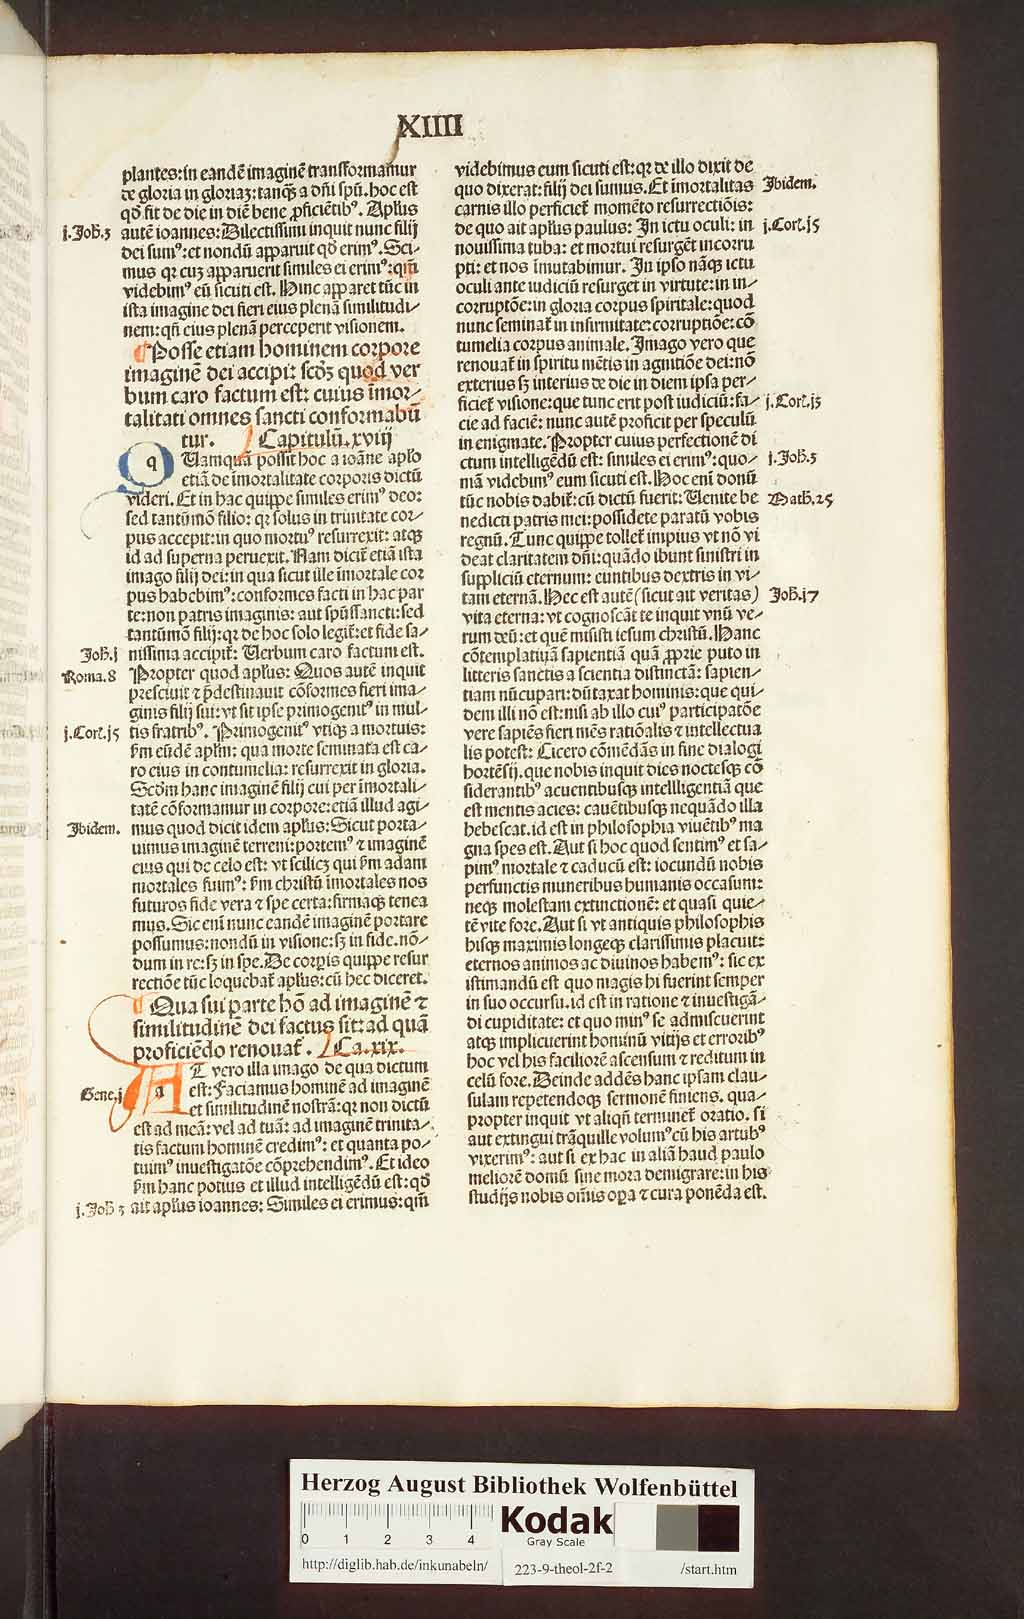 XIIII
plantes: in eandē imaginē transformamur
de gloria in gloriaꝫ: tanqꝫ a dñi spū. hoc est
qđ fit de die in diē bene ꝓficiētibꝰ. Apłus
j. Joh̄. 3 autē ioannes: Dilectissimi inquit nunc filij
dei sumꝰ: et nondū apparuit qđ erimꝰ. Sci-
mus qꝛ cuꝫ apparuerit similes ei erimꝰ: qm̄
videbimꝰ eū sicuti est. Hinc apparet tūc in
ista imagine dei fieri eius plenā similitudi-
nem: qñ eius plenā perceperit visionem.
¶ Posse etiam hominem corpore
imaginē dei accipi: scđꝫ quod ver
bum caro factum est: cuius īmor-
talitati omnes sancti conformabū
tur. Capitulū. xviij
q Uamquā possit hoc a ioāne apło
etiā de īmortalitate corporis dictū
videri. Et in hac quippe similes erimꝰ deo:
sed tantūmō filio: qꝛ solus in trinitate cor-
pus accepit: in quo mortuꝰ resurrexit: atqꝫ
id ad superna peruexit. Nam dicit̄ etiā ista
imago filij dei: in qua sicut ille īmortale cor
pus habebimꝰ: conformes facti in hac par
te: non patris imaginis: aut spūssancti: sed
tantūmō filij: qꝛ de hoc solo legit̄: et fide sa-
Joh̄. j nissima accipit̄: Uerbum caro factum est.
Roma. 8 Propter quod apłus: Quos autē inquit
presciuit ⁊ p̄destinauit cōformes fieri ima-
ginis filij sui: vt sit ipse primogenitꝰ in mul-
j. Cor̄. j5 tis fratribꝰ. Primogenitꝰ vtiqꝫ a mortuis:
fm̄ eūdē apłm: qua morte seminata est ca-
ro eius in contumelia: resurrexit in gloria.
Scđm hanc imaginē filij cui per īmortali-
tatē cōformamur in corpore: etiā illud agi-
Ibidem. mus quod dicit idem apłus: Sicut porta-
uimus imaginē terreni: portemꝰ ⁊ imaginē
eius qui de celo est: vt scilicꝫ qui fm̄ adam
mortales fuimꝰ: fm̄ christū īmortales nos
futuros fide vera ⁊ spe certa: firmaqꝫ tenea
mus. Sic eni nunc eandē imaginē portare
possumus: nondū in visione: sꝫ in fide. nō-
dum in re: sꝫ in spe. De corꝑis quippe resur
rectiōe tūc loquebat̄ apłus: cū hec diceret.
¶ Qua sui parte hō ad imaginē ⁊
similitudinē dei factus sit: ad quā
proficiēdo renouat̄. Ca. xix.
a T vero illa imago de qua dictum
Gene. j est: Faciamus hominē ad imaginē
et similitudinē nostrā: qꝛ non dictū
est ad meā: vel ad tuā: ad imaginē trinita-
tis factum hominē credimꝰ: et quanta po-
tuimꝰ inuestigatōe cōprehendimꝰ. Et ideo
fm̄ hanc potius et illud intelligēdū est: qđ
j. Joh̄ 3 ait apłus ioannes: Similes ei erimus: qm̄
videbimus eum sicuti est: qꝛ de illo dixit de
quo dixerat: filij dei sumus. Et īmortalitas Ibidem.
carnis illo perficiet̄ momēto resurrectiōis:
de quo ait apłus paulus: In ictu oculi: in j. Cor̄. j5
nouissima tuba: et mortui resurgēt incorru
pti: et nos īmutabimur. In ipso nāqꝫ ictu
oculi ante iudiciū resurget in virtute: in in-
corruptōe: in gloria corpus spiritale: quod
nunc seminat̄ in infirmitate: corruptiōe: cō
tumelia corpus animale. Imago vero que
renouat̄ in spiritu mētis in agnitiōe dei: nō
exterius sꝫ interius de die in diem ipsa per-
ficiet̄ visione: que tunc erit post iudiciū: fa- j. Cor̄. j3
cie ad faciē: nunc autē proficit per speculū
in enigmate. Propter cuius perfectionē di
ctum intelligēdū est: similes ei erimꝰ: quo- j. Joh̄. 3
niā videbimꝰ eum sicuti est. Hoc eni donū
tūc nobis dabit̄: cū dictū fuerit: Uenite be Math̄. 25
nedicti patris mei: possidete paratū vobis
regnū. Tunc quippe tollet̄ impius vt nō vi
deat claritatem dñi: quādo ibunt sinistri in
suppliciū eternum: euntibus dextris in vi-
tam eternā. Hec est autē (sicut ait veritas) Joh̄. j7
vita eterna: vt cognoscāt te inquit vnū ve-
rum deū: et quē misisti iesum christū. Hanc
cōtemplatiuā sapientiā quā ꝓprie puto in
litteris sanctis a scientia distinctā: sapien-
tiam nūcupari: dūtaxat hominis: que qui-
dem illi nō est: nisi ab illo cuiꝰ participatōe
vere sapiēs fieri mēs rationalis ⁊ intellectua
lis potest: Cicero cōmēdās in fine dialogi
hortēsij. que nobis inquit dies noctesqꝫ cō
siderantibꝰ acuentibusqꝫ intelligentiā que
est mentis acies: cauētibusqꝫ nequādo illa
hebescat. id est in philosophia viuētibꝰ ma
gna spes est. Aut si hoc quod sentimꝰ et sa-
pimꝰ mortale ⁊ caducū est: iocundū nobis
perfunctis muneribus humanis occasum:
neqꝫ molestam extinctionē: et quasi quie-
tē vite fore. Aut si vt antiquis philosophis
hisqꝫ maximis longeqꝫ clarissimis placuit:
eternos animos ac diuinos habemꝰ: sic ex
istimandū est quo magis hi fuerint semper
in suo occursu. id est in ratione ⁊ inuestigā-
di cupiditate: et quo minꝰ se admiscuerint
atqꝫ implicuerint hominū vitijs et erroribꝰ
hoc vel his faciliorē ascensum ⁊ reditum in
celū fore. Deinde addēs hanc ipsam clau-
sulam repetendoqꝫ sermonē finiens. qua-
propter inquit vt aliqñ terminet̄ oratio. si
aut extingui trāquille volumꝰ cū his artubꝰ
vixerimꝰ: aut si ex hac in aliā haud paulo
meliorē domū sine mora demigrare: in his
studijs nobis oīnis oꝑa ⁊ cura ponēda est.
Herzog August Bibliothek Wolfenbüttel
0 1 2 3 4
Kodak
Gray Scale
http://diglib.hab.de/inkunabeln/ 223-9-theol-2f-2 /start.htm